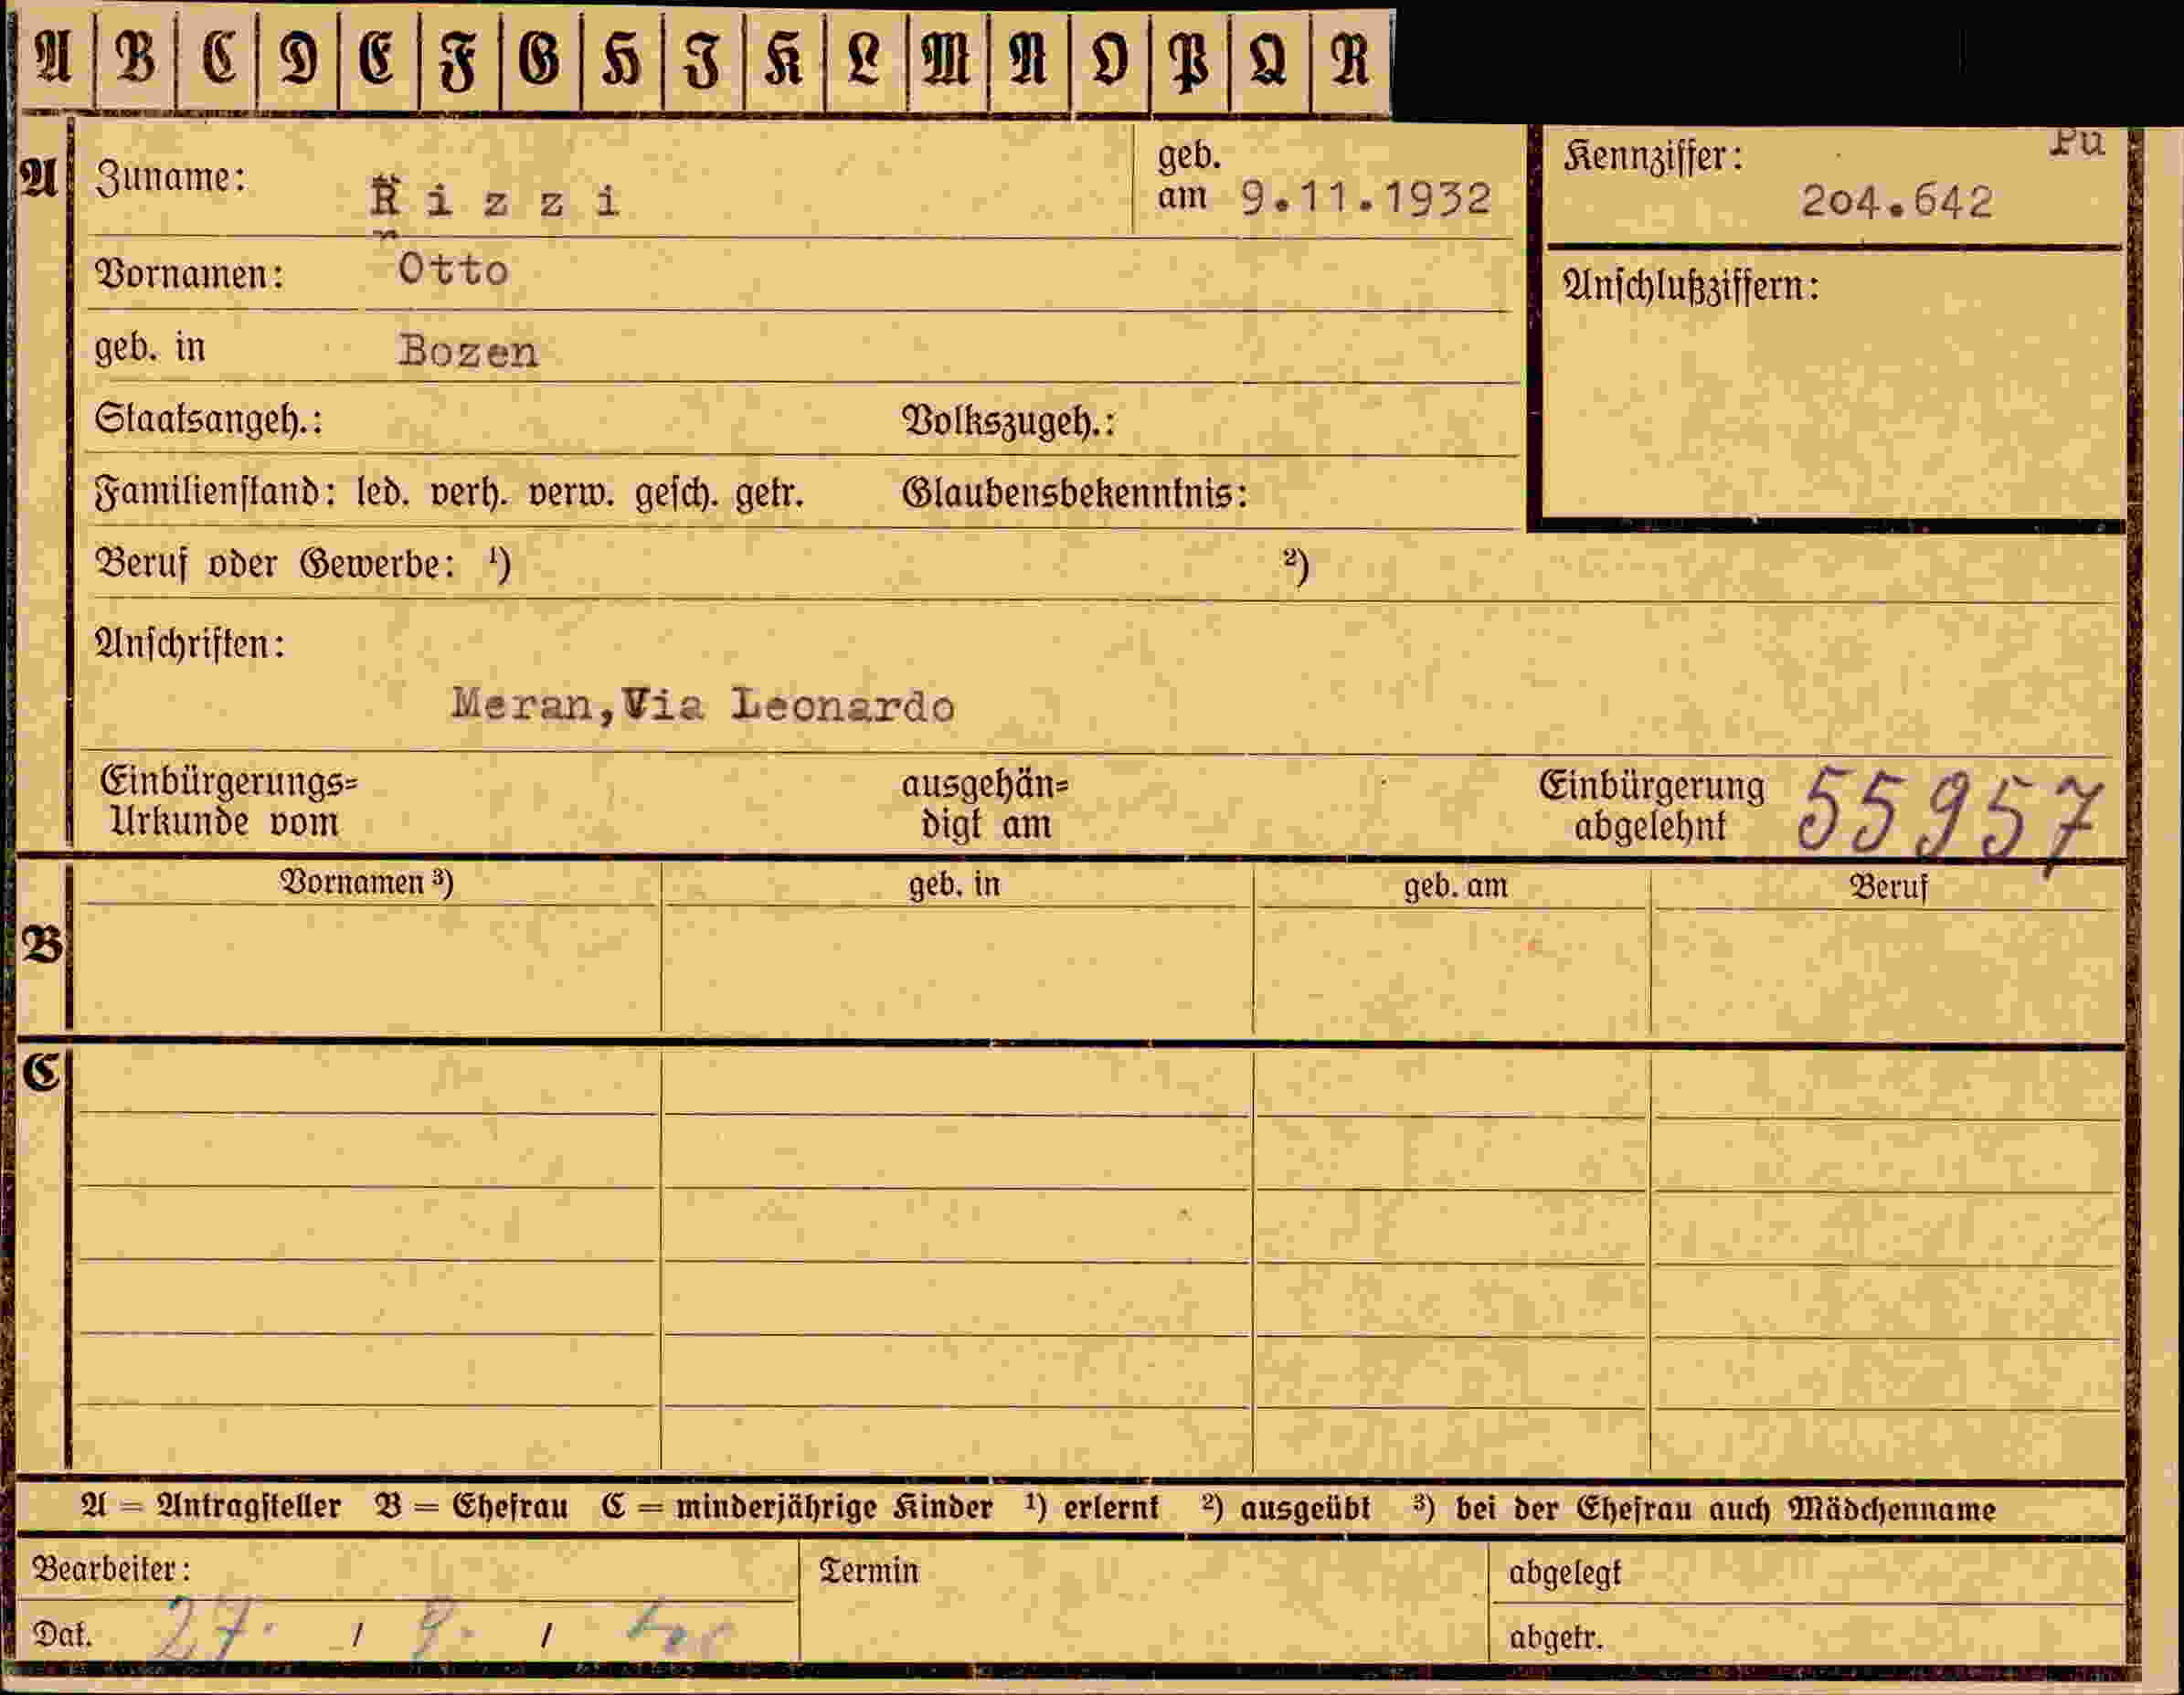 A B C D E F G H I K L M N O P Q R
A Zuname: Rizzi geb. am 9.11.1932 Kennziffer: 204.642 Pu
Vornamen: Otto Anschlußziffern:
geb. in Bozen
Staatsangeh.: Volkszugeh.:
Familienstand: led. verh. verw. gesch. getr. Glaubensbekenntnis:
Beruf oder Gewerbe: ¹) ²)
Anschriften:
Meran,Via Leonardo
Einbürgerungs= ausgehän= Einbürgerung 55957
Urkunde vom digt am abgelehnt
Vornamen ³) geb. in geb. am Beruf
B
C
A = Antragsteller B = Ehefrau C = minderjährige Kinder ¹) erlernt ²) ausgeübt ³) bei der Ehefrau auch Mädchenname
Bearbeiter: Termin abgelegt
Dat. 27. / 9. / abgetr.